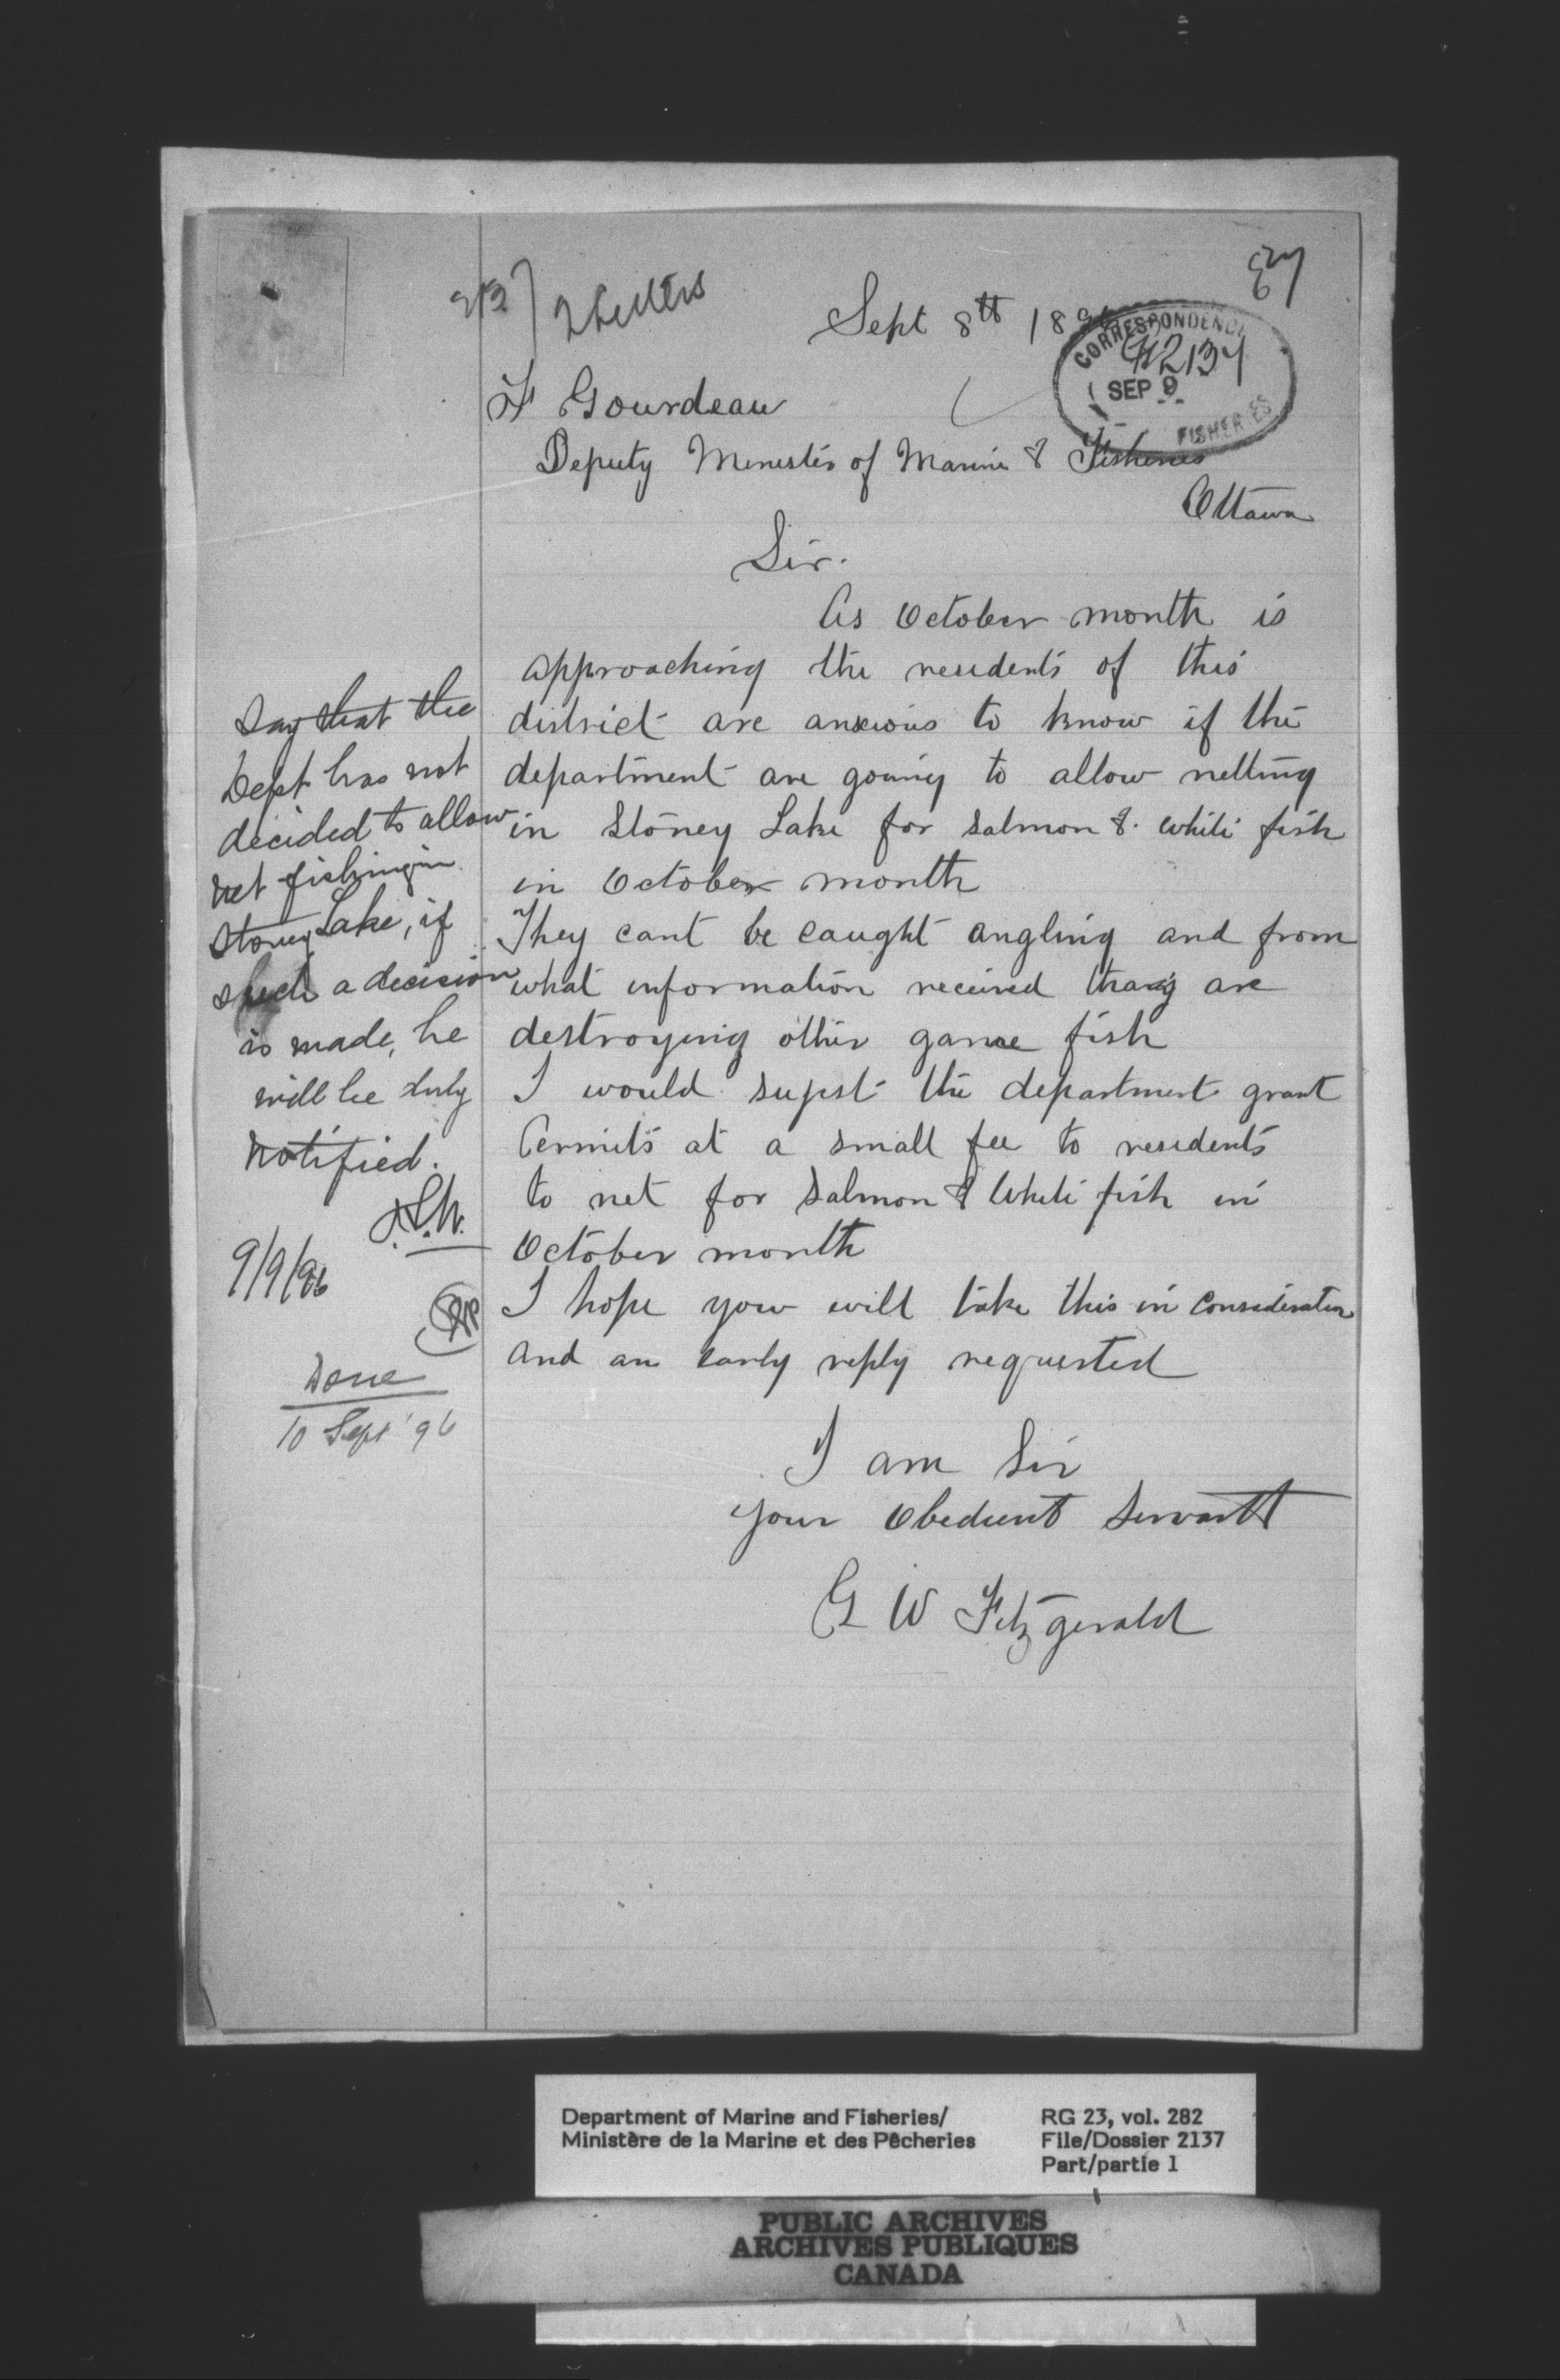 2 Letters
Sept 8th 189
CORRESPONDENC
2137
SEP 9
FISHERIES
F Gourdeau
Deputy Minister of Marine & Fisheries
Ottawa
Sir.
As October month is
approaching the residents of this
district are anxious to know if the
department are going to allow netting
in Stoney Lake for salmon & white fish
in October month
They cant be caught angling and from
what information received are
destroying other game fish
I would sugst the department grant
Permits at a small fee to residents
to net for salmon & White fish in
October month
I hope you will take this in consideration
and an early reply requested
I am Sir
your obedient servantt
G W Fitzgerald
Say that the
Dept has not
decided to allow
net fishing in
Stoney Lake, if
such a decision
is made, he
will be duly
notified.
9/9/96
Done
10 Sept '96
Department of Marine and Fisheries/
Ministère de la Marine et des Pêcheries
RG 23, vol. 282
File/Dossier 2137
Part/partie 1
PUBLIC ARCHIVES
ARCHIVES PUBLIQUES
CANADA